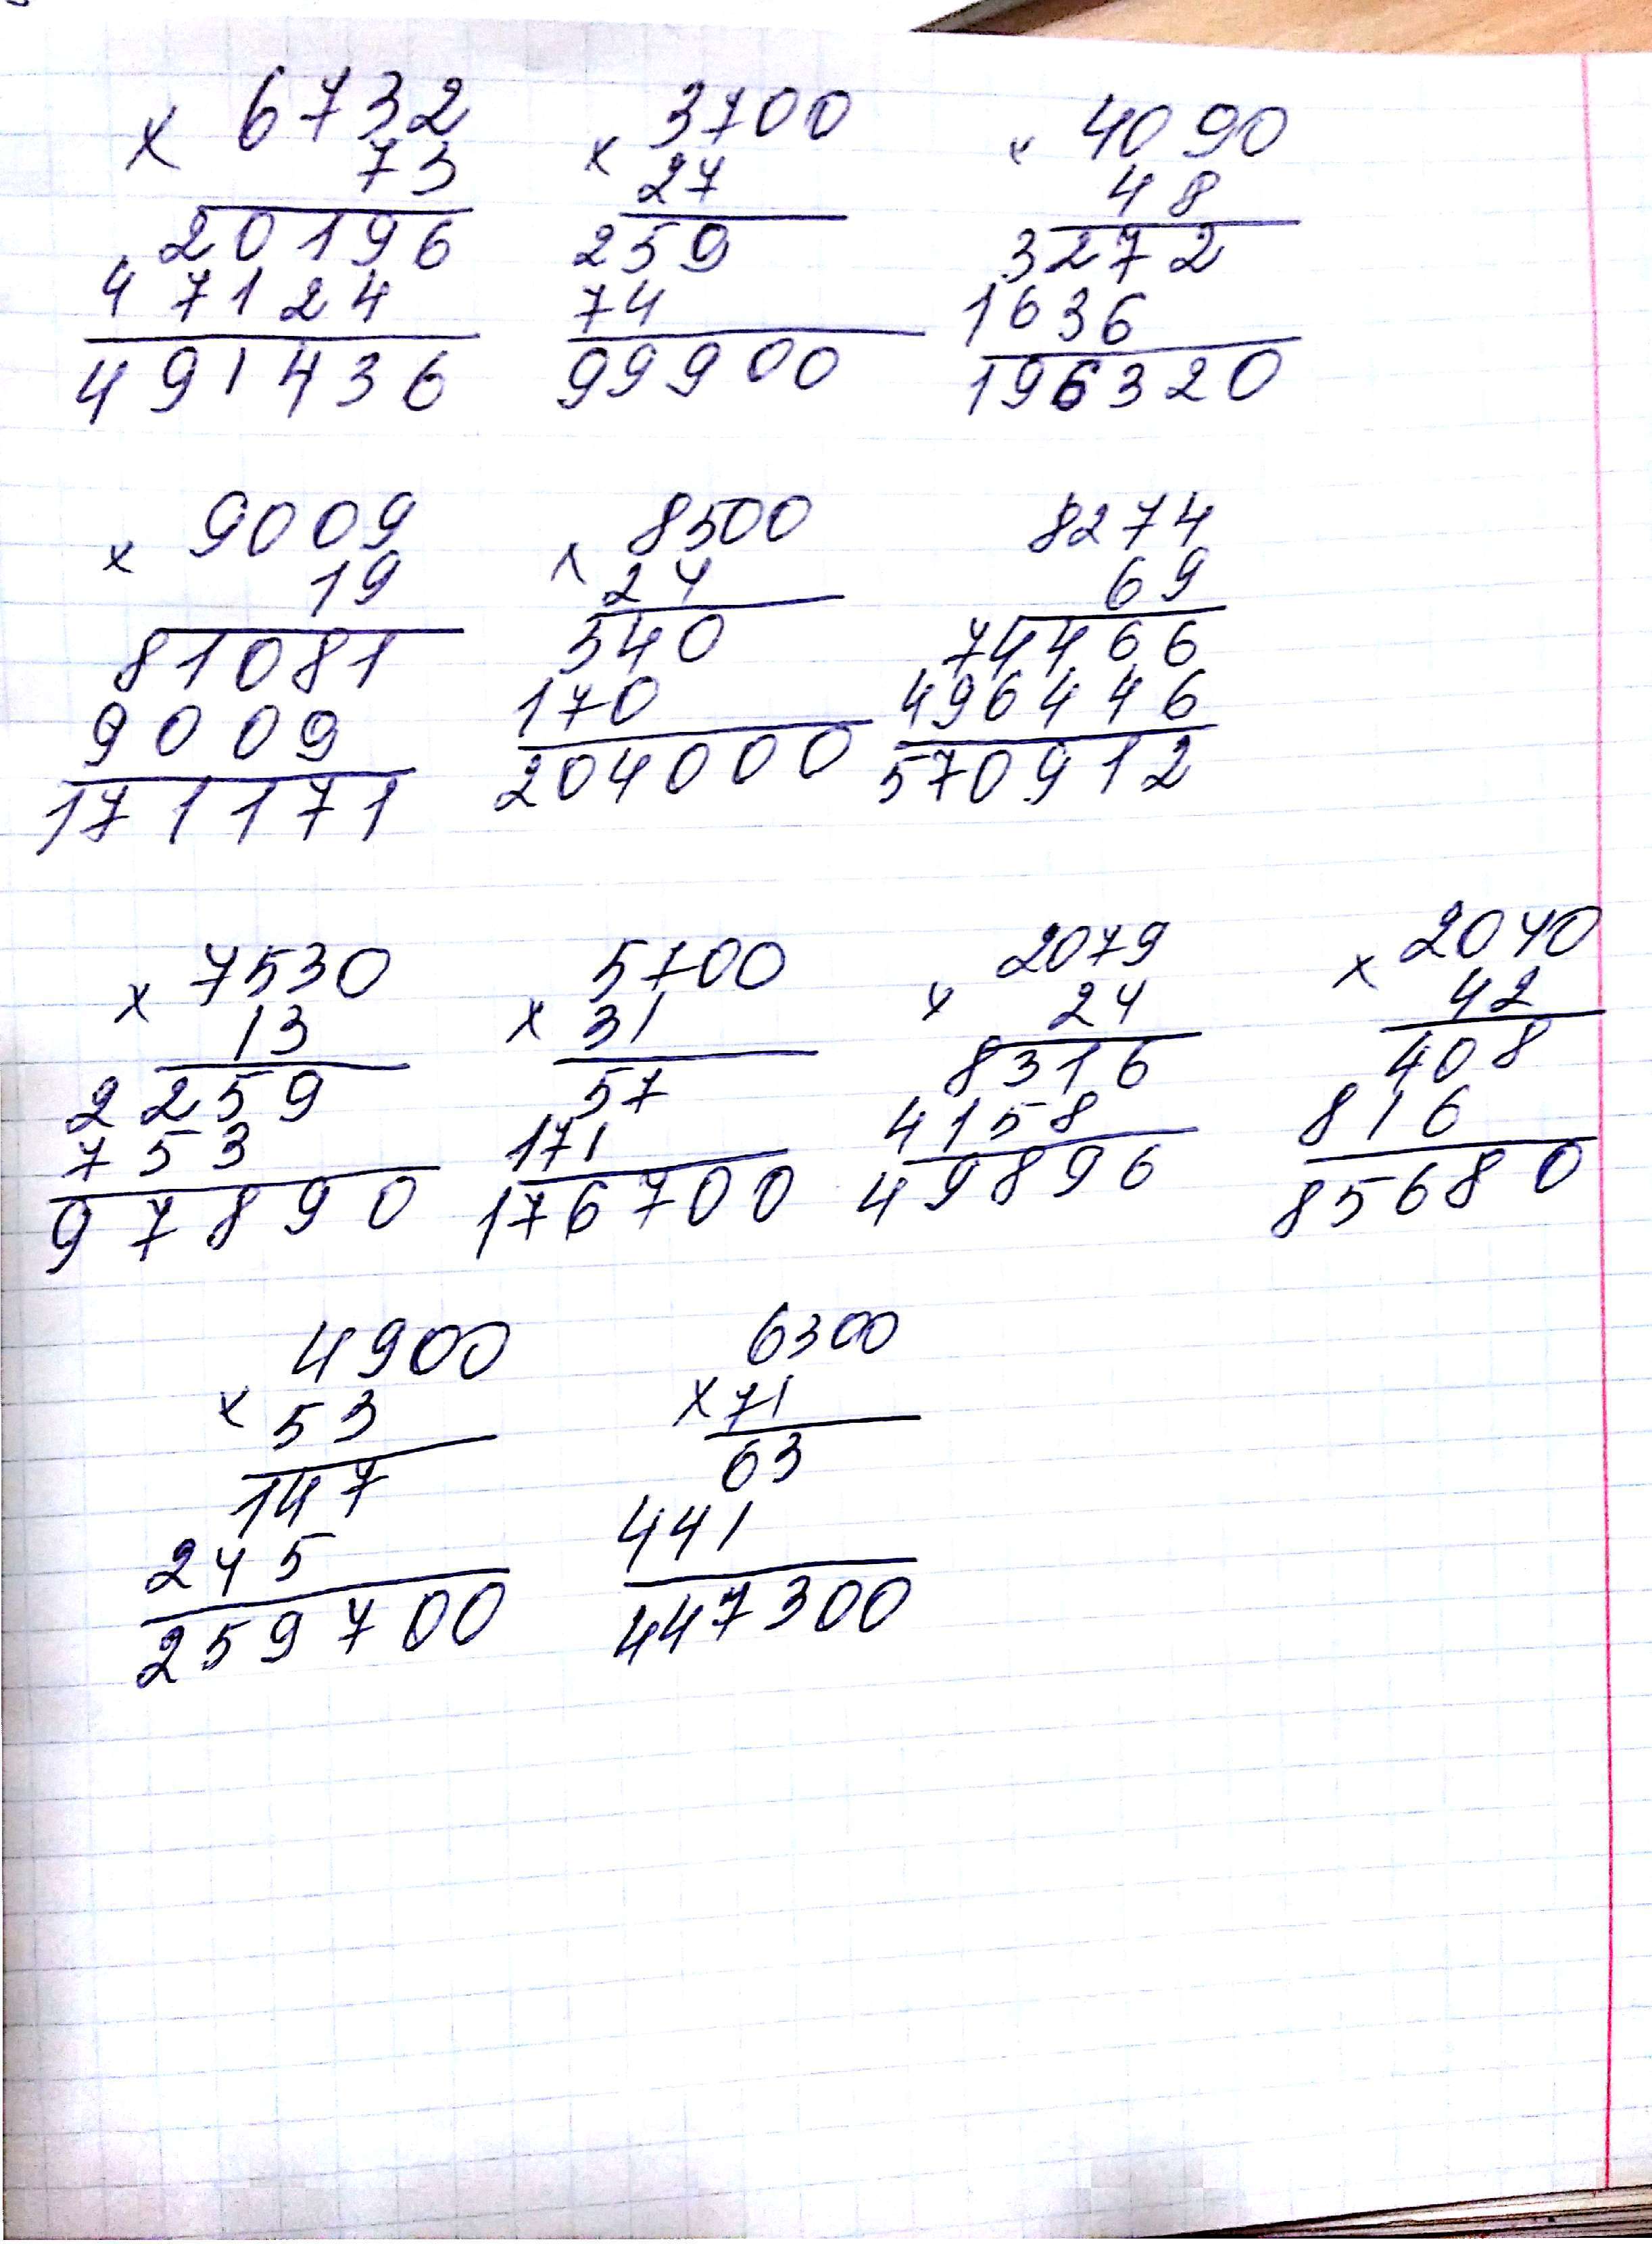 × 6732 × 3700 × 4090
73 27 48
20196 259 3272
47124 74 1636
491436 99900 196320
× 9009 × 8500 8274
19 24 69
81081 340 74466
9009 170 496446
171171 204000 570912
× 7530 × 5700 × 2079 × 2040
13 31 24 42
2259 57 8316 408
753 171 4158 816
97890 176700 49896 85680
× 4900 × 6300
53 71
147 63
245 441
259700 447300